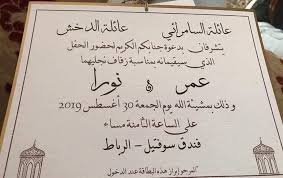 عائلة السامرائي عائلة الدخش
يتشرفان بدعوة جنابكم الكريم لحضور الحفل
الذي سيقيمانه بمناسبة زفاف نجليهما
عمر & نورا
و ذلك بمشيئة الله يوم الجمعة 30 أغسطس 2019
على الساعة الثامنة مساء
فندق سوفتيل - الرباط
المرجو إبراز هذه البطاقة عند الدخول